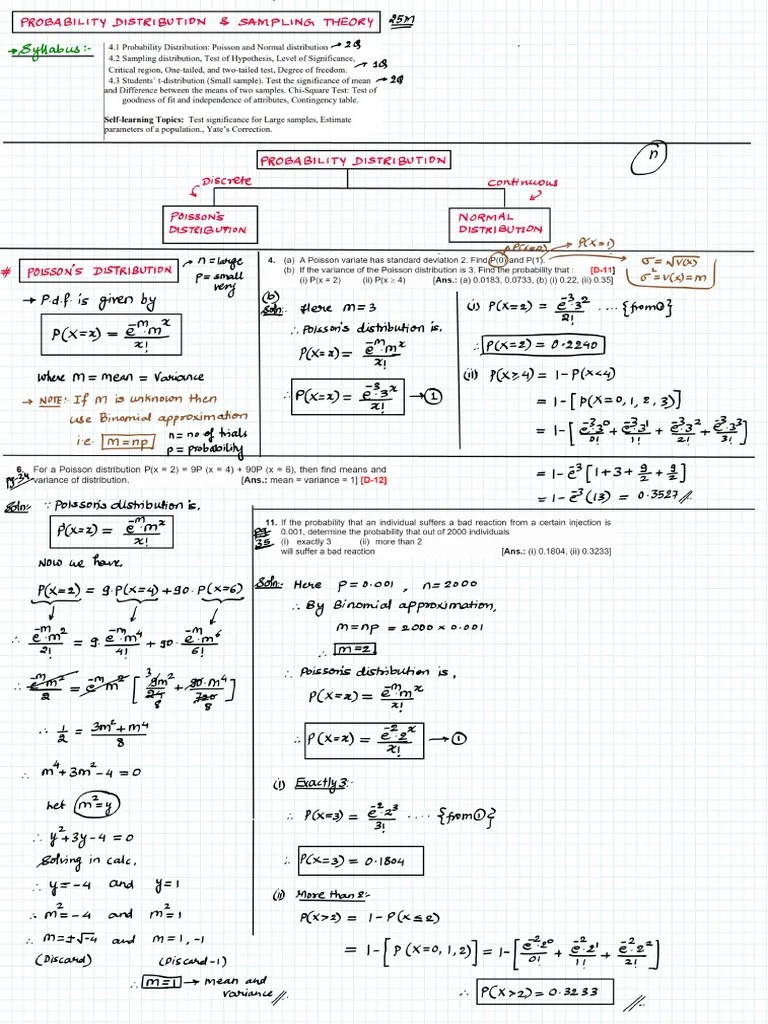 PROBABILITY DISTRIBUTION & SAMPLING THEORY 25M
→ Syllabus:-
4.1 Probability Distribution: Poisson and Normal distribution → 2Q
4.2 Sampling distribution, Test of Hypothesis, Level of Significance,
Critical region, One-tailed, and two-tailed test, Degree of freedom. → 1Q
4.3 Students' t-distribution (Small sample). Test the significance of mean → 2Q
and Difference between the means of two samples. Chi-Square Test: Test of
goodness of fit and independence of attributes, Contingency table.
Self-learning Topics: Test significance for Large samples, Estimate
parameters of a population., Yate's Correction.
n
PROBABILITY DISTRIBUTION
Discrete
Continuous
POISSON'S
DISTRIBUTION
NORMAL
DISTRIBUTION
# POISSON'S DISTRIBUTION → n = large
p = small
very
→ P.d.f. is given by
P(X=x) = e^-m · m^x / x!
where m = mean = variance
→ NOTE:- If m is unknown then
use Binomial approximation
i.e. m = np n = no of trials
p = probability
P(X=0) → P(X=1)
4. (a) A Poisson variate has standard deviation 2. Find P(0) and P(1).
(b) If the variance of the Poisson distribution is 3. Find the probability that : [D-11]
(i) P(x = 2) (ii) P(x ≥ 4) [Ans.: (a) 0.0183, 0.0733, (b) (i) 0.22, (ii) 0.35]
σ = √V(x)
σ² = V(x) = m
(b)
Soln:- Here m = 3
∴ Poisson's distribution is,
P(X=x) = e^-m m^x / x!
∴ P(X=x) = e^-3 · 3^x / x! → ①
(i) P(X=2) = e^-3 · 3^2 / 2! .... {from ①}
∴ P(X=2) = 0.2240
(ii) P(X≥4) = 1 - P(X<4)
= 1 - [P(X=0, 1, 2, 3)]
= 1 - [e^-3 3^0 / 0! + e^-3 3^1 / 1! + e^-3 3^2 / 2! + e^-3 3^3 / 3!]
= 1 - e^-3 [1 + 3 + 9/2 + 9/2]
= 1 - e^-3 (13) = 0.3527 //.
6. For a Poisson distribution P(x = 2) = 9P (x = 4) + 90P (x = 6), then find means and
pg-34 variance of distribution. [Ans.: mean = variance = 1] [D-12]
Soln:- ∵ Poisson's distribution is,
P(X=x) = e^-m · m^x / x!
Now we have,
P(X=2) = 9·P(X=4) + 90·P(X=6)
∴ e^-m · m^2 / 2! = 9· e^-m · m^4 / 4! + 90· e^-m · m^6 / 6!
∴ e^-m m^2 / 2 = e^-m m^2 [3 9m^2 / 24 8 + 90·m^4 / 720 8]
∴ 1/2 = 3m² + m⁴ / 8
∴ m⁴ + 3m² - 4 = 0
Let m² = y
∴ y² + 3y - 4 = 0
Solving in calc,
∴ y = -4 and y = 1
∴ m² = -4 and m² = 1
∴ m = ±√-4 and m = 1, -1
(Discard) (Discard -1)
∴ m = 1 → mean and
variance //.
11. If the probability that an individual suffers a bad reaction from a certain injection is
pg 35 0.001, determine the probability that out of 2000 individuals
(i) exactly 3 (ii) more than 2
will suffer a bad reaction [Ans.: (i) 0.1804, (ii) 0.3233]
Soln:- Here p = 0.001 , n = 2000
∴ By Binomial approximation,
m = np = 2000 × 0.001
∴ m = 2
∴ Poisson's distribution is,
P(X=x) = e^-m m^x / x!
∴ P(X=x) = e^-2 · 2^x / x! → ①
(i) Exactly 3:-
∴ P(X=3) = e^-2 · 2^3 / 3! .... {from ①}
∴ P(X=3) = 0.1804
(ii) More than 2:-
P(X>2) = 1 - P(X≤2)
= 1 - [P(X=0, 1, 2)] = 1 - [e^-2 · 2^0 / 0! + e^-2 · 2^1 / 1! + e^-2 · 2^2 / 2!]
∴ P(X>2) = 0.3233 //.